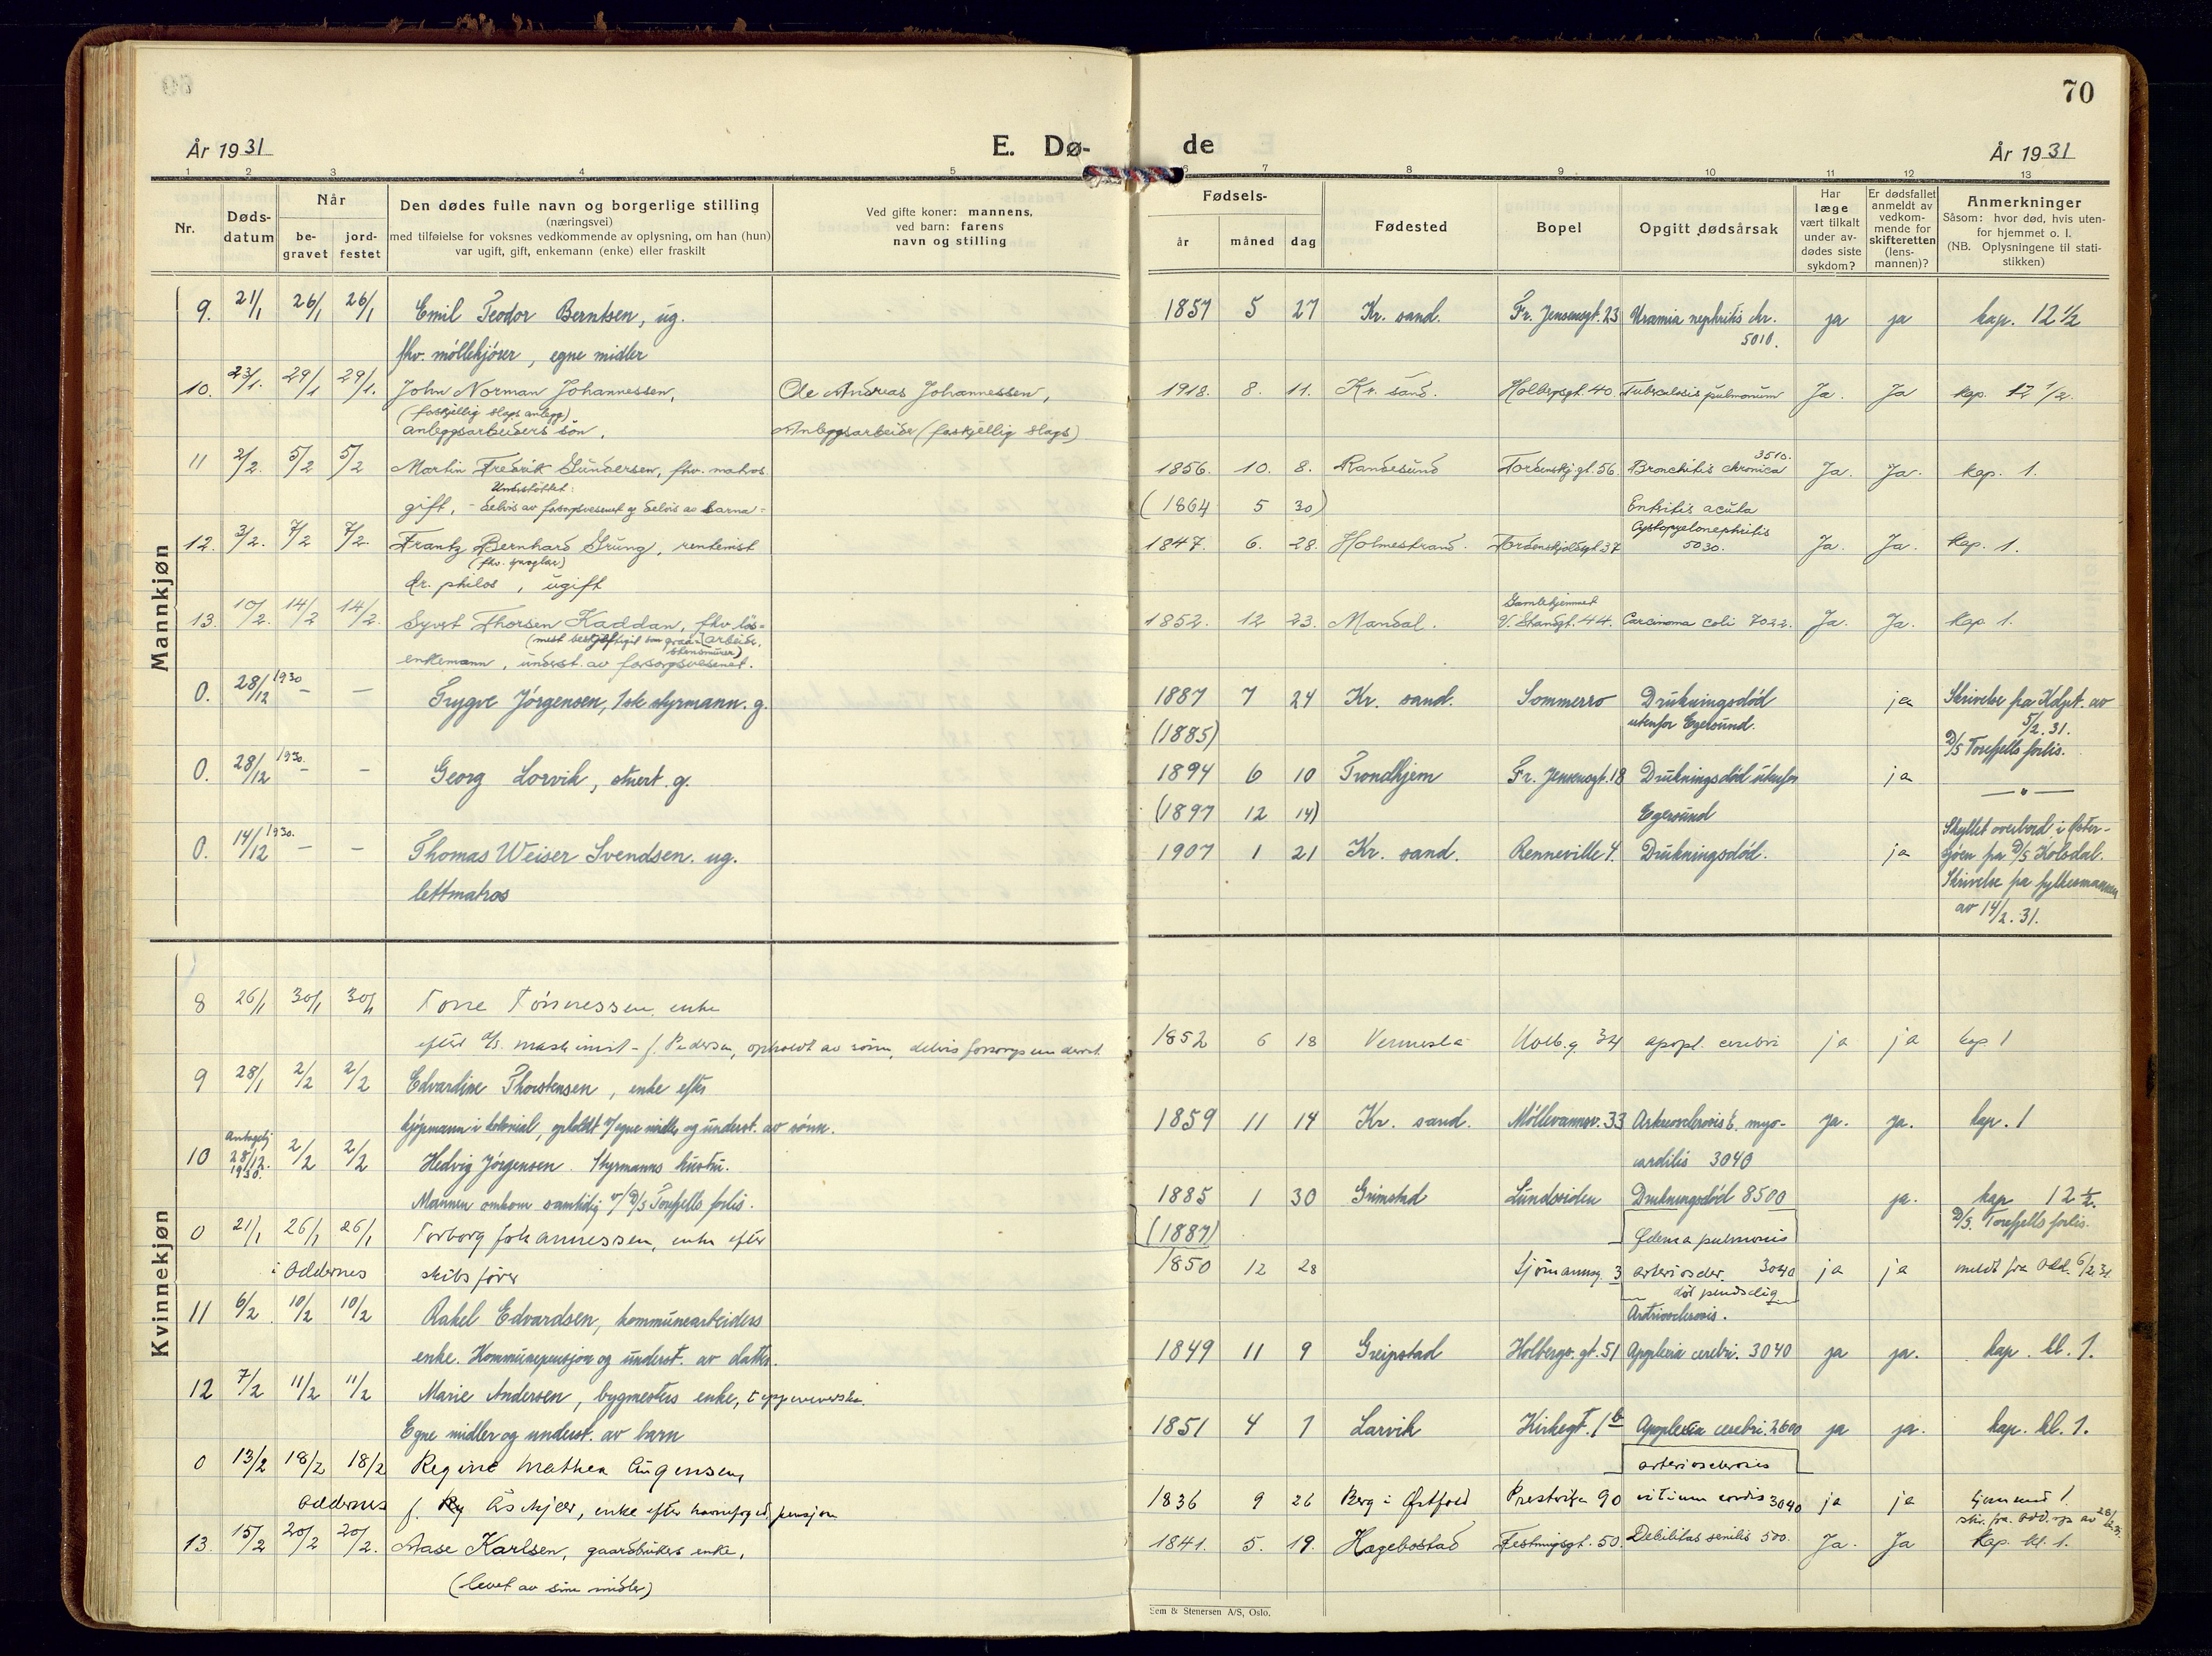 70
År 1931
E. Dø-
de
År 1931
1 2 3 4 5 6 7 8 9 10 11 12 13
Nr.
Døds-
datum
Når
be-
gravet
jord-
festet
Den dødes fulle navn og borgerlige stilling
(næringsvei)
med tilføielse for voksnes vedkommende av oplysning, om han (hun)
var ugift, gift, enkemann (enke) eller fraskilt
Ved gifte koner: mannens,
ved barn: farens
navn og stilling
Fødsels-
år måned dag
Fødested
Bopel
Opgitt dødsårsak
Har
læge
vært tilkalt
under av-
dødes siste
sykdom?
Er dødsfallet
anmeldt av
vedkom-
mende for
skifteretten
(lens-
mannen)?
Anmerkninger
Såsom: hvor død, hvis uten-
for hjemmet o. l.
(NB. Oplysningene til stati-
stikken)
Mannkjøn
9. 21/1 26/1 26/1 Emil Teodor Berntsen, ug. 1857 5 27 Kr. sand. Fr. Jensensgt. 23 Uramia nephritis chr. ja ja kap. 12 1/2
fhv. møllekjører, egne midler 5010.
10. 23/1. 29/1 29/1. John Norman Johannessen, Ole Andreas Johannessen, 1918. 8. 11. Kr. sand. Holbergsgt. 40. Tuberculosis pulmonum Ja. Ja kap. 12 1/2.
(forskjellig slags anlegg)
anleggsarbeiders søn. Anleggsarbeider (forskjellig slags)
11 2/2. 5/2 5/2 Martin Fredrik Gundersen, fhv. matros 1856. 10. 8. Randesund Tordenskj.gt. 56. Bronchitis chronica 3510. Ja. Ja. kap. 1.
Understøttet:
gift, - delvis av forsorgsvesenet og delvis av barna = (1864 5 30) Entritis acuta
12. 3/2. 7/2 7/2. Frantz Bernhard Grung, rentenist 1847. 6. 28. Holmestrand. Tordenskjoldsgt 37 Cystopyelonephritis 5030. Ja. Ja. Kap. 1.
dr. philos, ugift
13. 10/2. 14/2 14/2. Syvert Thorsen Kaddan, fhv. løs= 1852. 12 23. Mandal. Gamlehjemmet V. Strandgt. 44. Carcinoma coli 7022. Ja. Ja. Kap 1.
(mest beskjæftiget som graa- [arbeider,
stensmurer)
enkemann, underst. av forsorgsvesenet.
0. 28/12 1930 — — Trygve Jørgensen, 1ste styrmann. g. 1887 7 24 Kr. sand. Sommerro Drukningsdød ja Skrivelse fra Kdpt. av
(1885) utenfor Egersund. 5/2. 31.
D/S Torefjells forlis.
0. 28/12 1930. — — Georg Lorvik, stuert. g. 1894 6 10 Trondhjem Fr. Jensensgt. 18 Drukningsdød utenfor ja — " —
(1897 12 14) Egersund
0. 14/12 1930. — — Thomas Weiser Svendsen. ug. 1907 1 21 Kr. sand. Renneville 4. Drukningsdød. ja Skyllet overbord i Øster-
sjøen fra D/S Kolsdal.
lettmatros Skrivelse fra fylkesmannen
av 14/2. 31.
Kvinnekjøn
8 26/1 30/1 30/1 Torre Tönnessen, enke
efter maskinist - f. Pedersen, opholdt av sønn, delvis forsorgsunderst. 1852 6 18 Vennesla Holb.g. 34 apopl. cerebri ja ja kap 1
9 28/1 2/2 2/2 Edvardine Thorstensen, enke efter
kjøpmann i kolonial, opholdt v/ egne midler og underst. av sønn. 1859 11 14 Kr. sand. Møllevannsv. 33 Arteriosclerosis & myo- ja. ja. kap. 1
carditis 3040
10 Antagelig 28/12. 1930. 2/2 2/2 Hedvig Jørgensen. Styrmanns hustru.
Mannen omkom samtidig v/ D/S Torefjells forlis. 1885 1 30 Grimstad Lundsiden Drukningsdød 8500 ja. kap 12 1/2.
(1887) D/S. Torefjells forlis.
0 21/1 26/1 26/1 Torborg Johannessen, enke efter Ødema pulmonis
i Oddernes skibsfører 1850 12 28 Sjømannsg. 3 arterioscler. 3040 ja ja meldt fra Odd. 6/2 31
død pludselig
11 6/2 10/2 10/2 Rakel Edvardsen, kommunearbeiders Arteriosclerosis.
enke. Kommunepensjon og underst. av datter. 1849 11 9 Greipstad Holbergs.gt. 51 Apoplexia cerebri. 3040 ja ja. kap. kl. 1.
12 7/2 11/2 11/2 Marie Andersen, bygmesters enke, teppeveverske.
Egne midler og underst. av barn 1851 4 7 Larvik Kirkegt. 1b Apoplexia cerebri. 2600 ja ja. kap. kl. 1.
0 13/2 18/2 18/2 Regine Mathea Augensen, arteriosclerosis
Oddernes f. Aschjær, enke efter havnefoged, pensjon 1836 9 26 Berg i Østfold Prestvika 90 vitium cordis 3040 ja ja hjemmed 1.
skr. fra Odd.
13. 15/2 20/2 20/2. Aase Karlsen, gaardbrukers enke, 1841. 5. 19. Hægebostad Festningsgt. 50. Debilitas senilis 500. Ja. Ja Kap. kl. 1.
(levet av sine midler)
Sem & Stenersen A/S, Oslo.